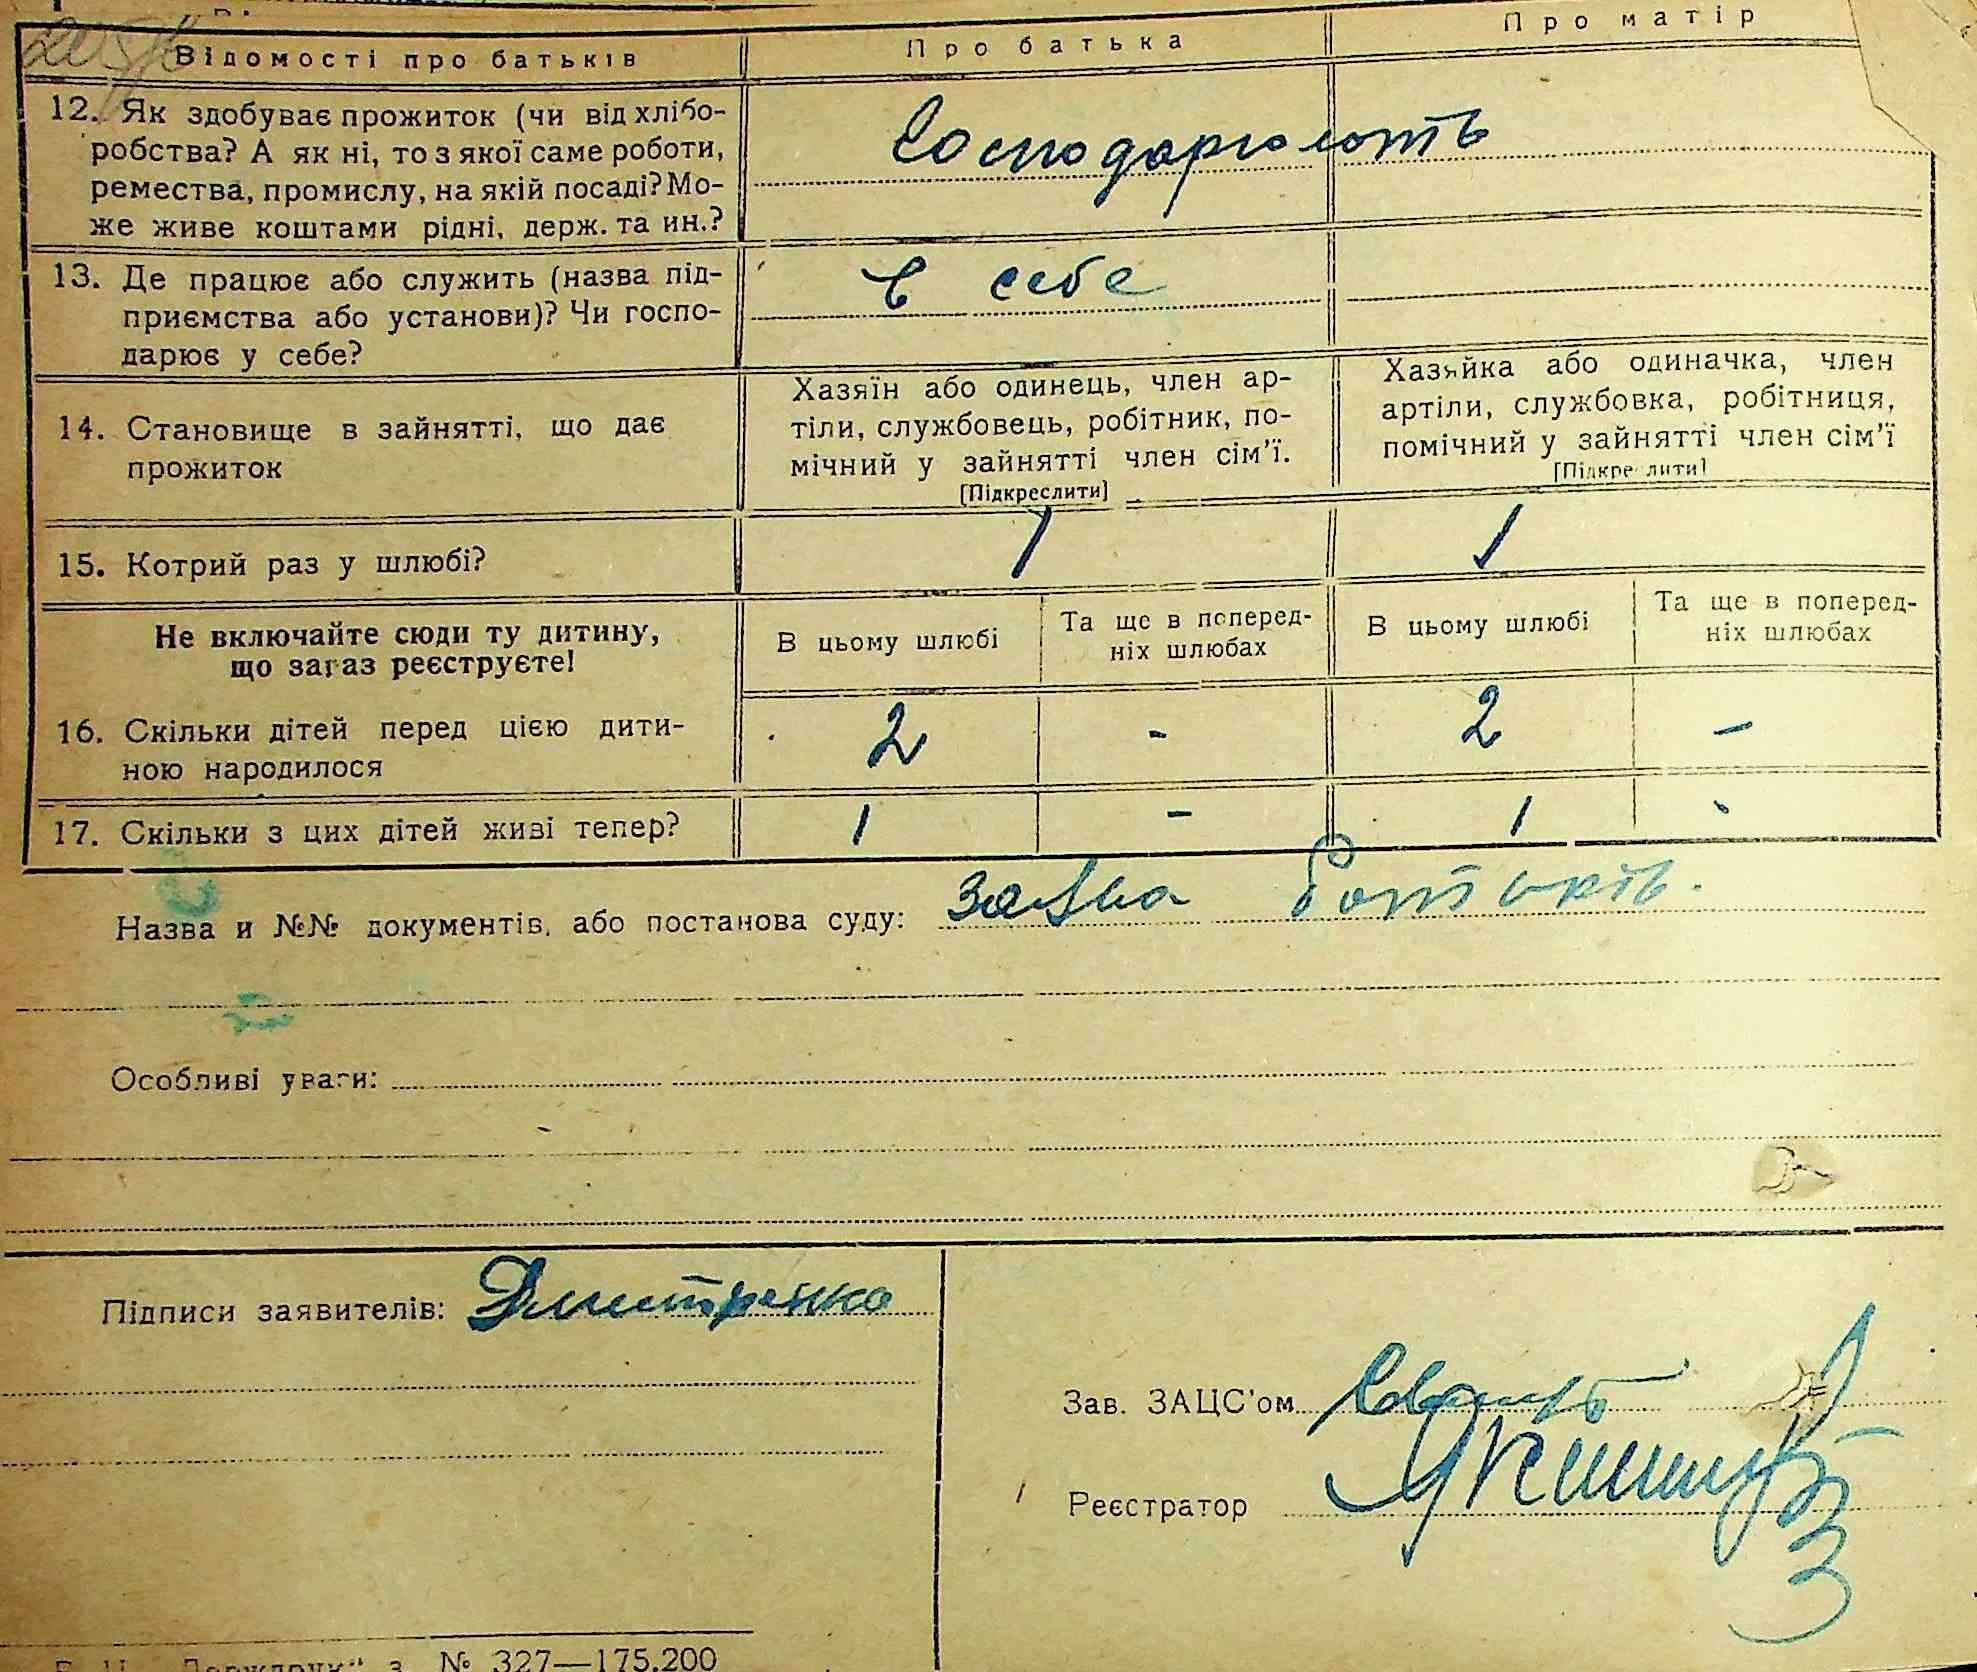 Відомості про батьків Про батька Про матір
12. Як здобуває прожиток (чи від хлібо-
робства? А як ні, то з якої саме роботи,
ремества, промислу, на якій посаді? Мо-
же живе коштами рідні, держ. та ин.?
Господарюють
13. Де працює або служить (назва під-
приємства або установи)? Чи госпо-
дарює у себе?
в себе
14. Становище в зайнятті, що дає
прожиток
Хазяїн або одинець, член ар-
тіли, службовець, робітник, по-
мічний у зайнятті член сім'ї.
[Підкреслити]
Хазяйка або одиначка, член
артіли, службовка, робітниця,
помічний у зайнятті член сім'ї
[Підкреслити]
15. Котрий раз у шлюбі? 1 1
Не включайте сюди ту дитину,
що зараз реєструєте!
В цьому шлюбі
Та ще в поперед-
ніх шлюбах
В цьому шлюбі
Та ще в поперед-
ніх шлюбах
16. Скільки дітей перед цією дити-
ною народилося
2 - 2 -
17. Скільки з цих дітей живі тепер? 1 - 1 -
Назва и №№ документів, або постанова суду: заява батьків.
Особливі уваги:
Підписи заявителів: Дмитренко
Зав. ЗАЦС'ом
Реєстратор
№ 327—175.200